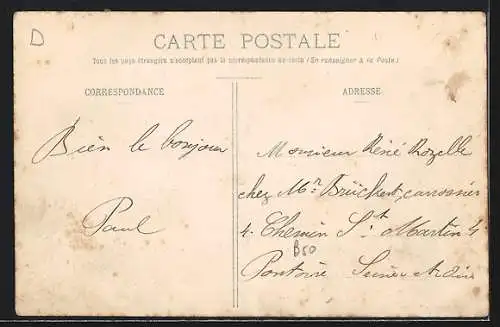 D
CARTE POSTALE
Tous les pays étrangers n'acceptent pas la correspondance au recto (Se renseigner à la Poste)
CORRESPONDANCE
ADRESSE
Bien le bonjour
Paul
Monsieur René Rozelle
chez Mr Brückert, carrossier
4. Chemin St Martin 4
B50
Pontoise Seine & Oise